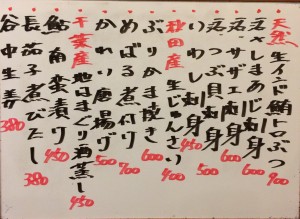 天然 生インド鮪トロぶつ 900
活〆しまあじ刺身 600
活サザエ刺身 600
活つぶ貝刺身 500
いわし刺身 450
秋田産 生じゅんさい 400
ぶりかま焼き 600
めばる煮付け 700
かれい唐揚げ 500
千葉産 地はまぐり酒蒸し 450
鮎南蛮漬け 450
長茄子煮びたし 380
谷中生姜 380